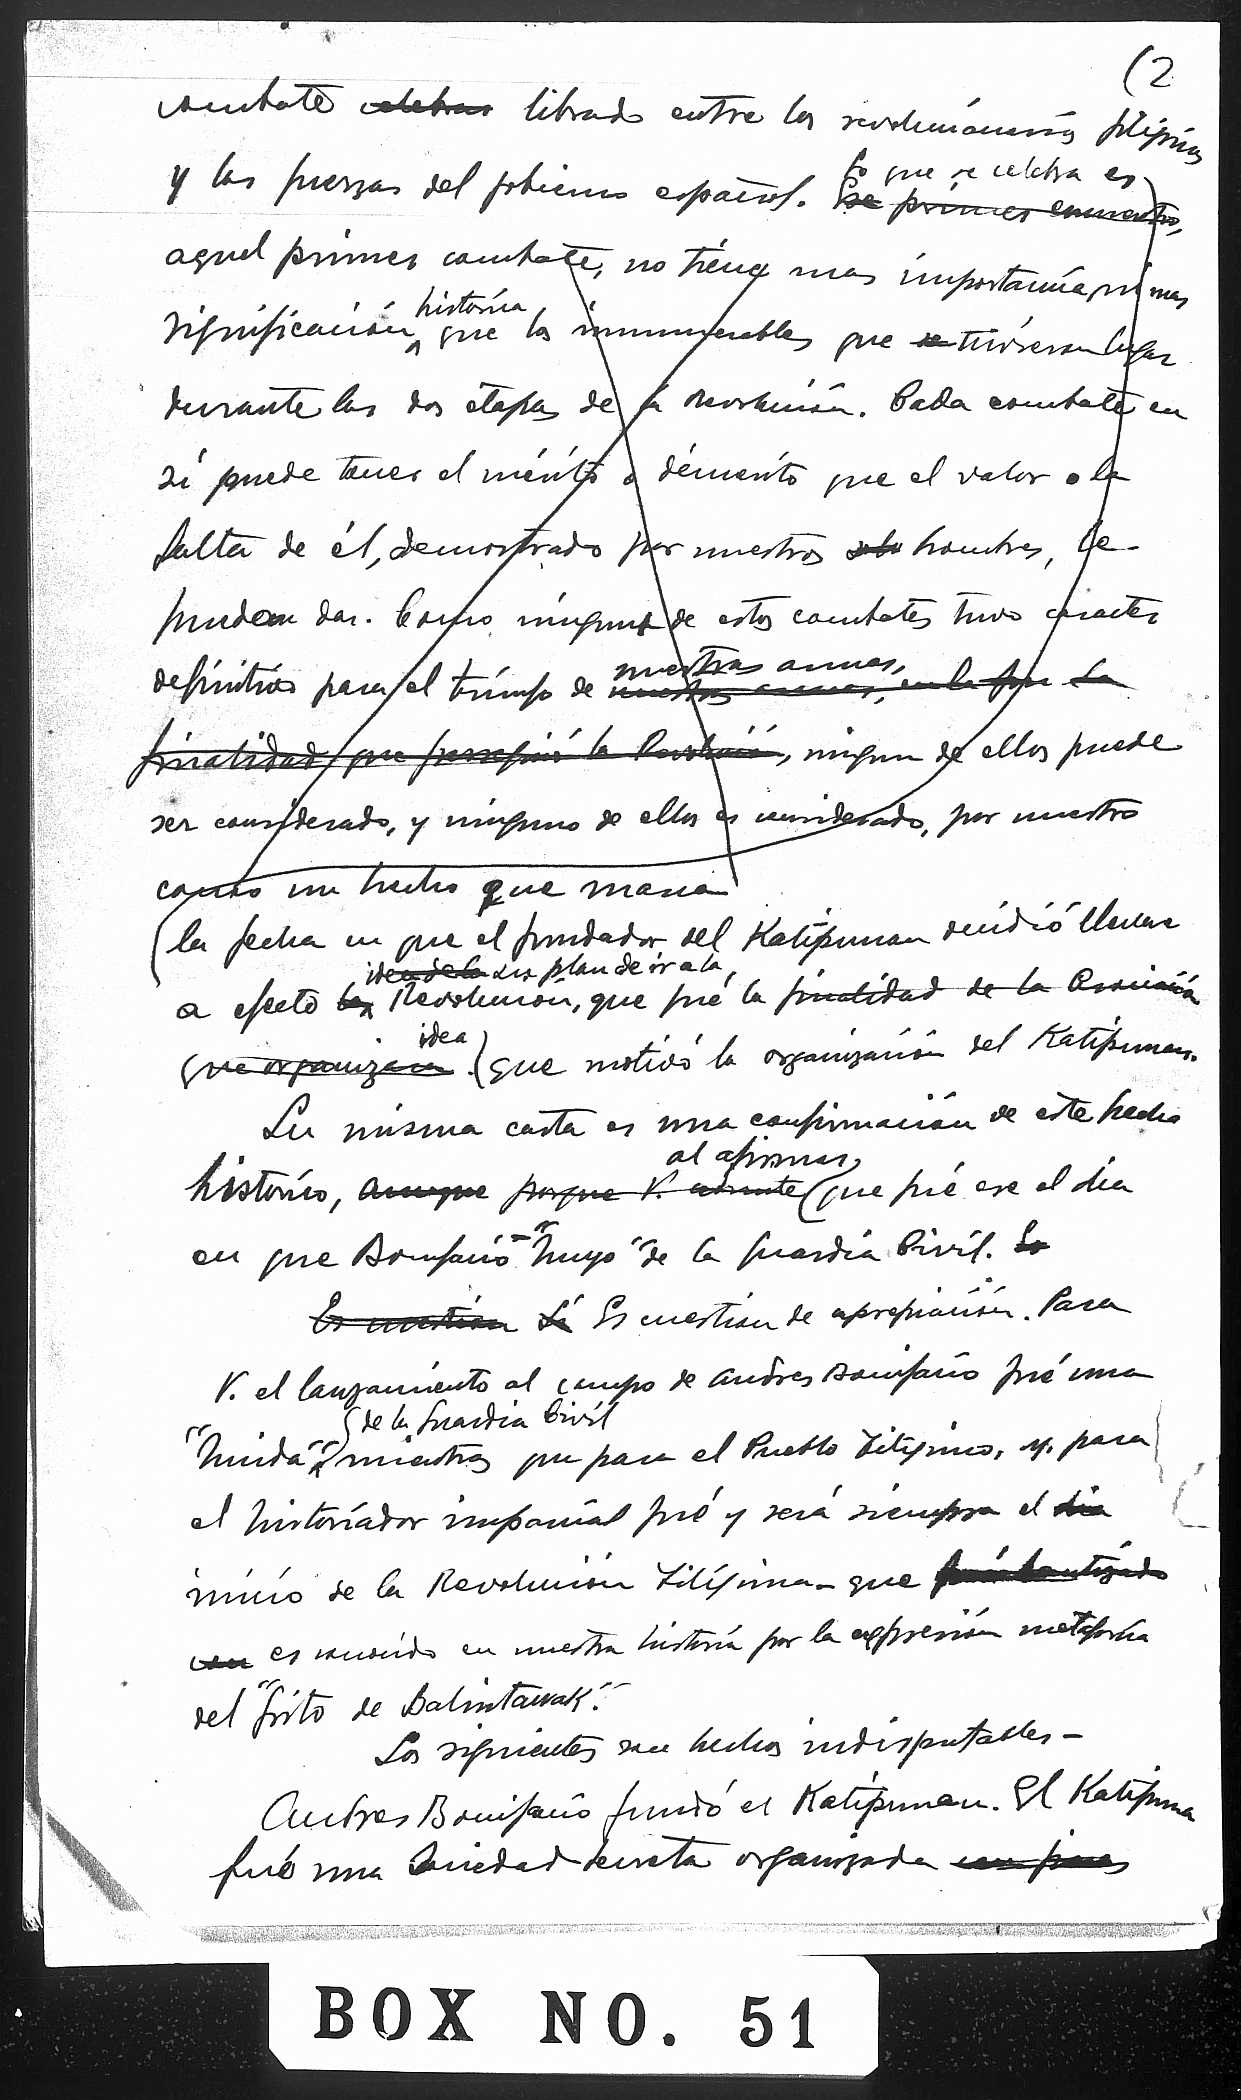 (2
combate celebrar librado entre los revolucionarios filipinos
lo que se celebra es
y las fuerzas del gobierno español. Ese primer encuentro,
aquel primer combate, no tiene mas importancia, ni mas
historica
significación que los innumerables que se tuvieron lugar
durante las dos etapas de la revolución. Cada combate en
sí puede tener el mérito o démerito que el valor o la
falta de él, demostrado por nuestros hombres, le
pueden dar. Como ninguno de estos combates tuvo caracter
nuestras armas,
definitivo para el triunfo de nuestras armas, en la que la
finalidad que persiguió la Revolución, ningun de ellos puede
ser considerado, y ninguno de ellos es considerado, por nuestro
como un hecho que marca
(la fecha en que el fundador del Katipunan decidió llevar
idea de la su plan de ir a la
a efecto la Revolución, que fué la finalidad de la Asociación
idea
que organizara (que motivó la organización del Katipunan.
Su misma carta es una confirmación de este hecho
al afirmar,
histórico, aunque porque V. admite (que fué ese el dia
en que Bonifacio "huyo" de la Guardia Civil. Lo
Es cuestión Si Es cuestion de apreciación. Para
V. el lanzamiento al campo de Andres Bonifacio fué una
de la Guardia Civil
"huida" mientras que para el Pueblo Filipino, y para
el historiador imparcial fué y será siempre el dia
inicio de la Revolución Filipina - que fué bautizado
con es conocido en nuestra historia por la expresión metaforica
del "Grito de Balintawak".
Los siguientes son hechos indisputables -
Andres Bonifacio fundó el Katipunan. El Katipunan
fué una Sociedad secreta organizada con fines
BOX NO. 51